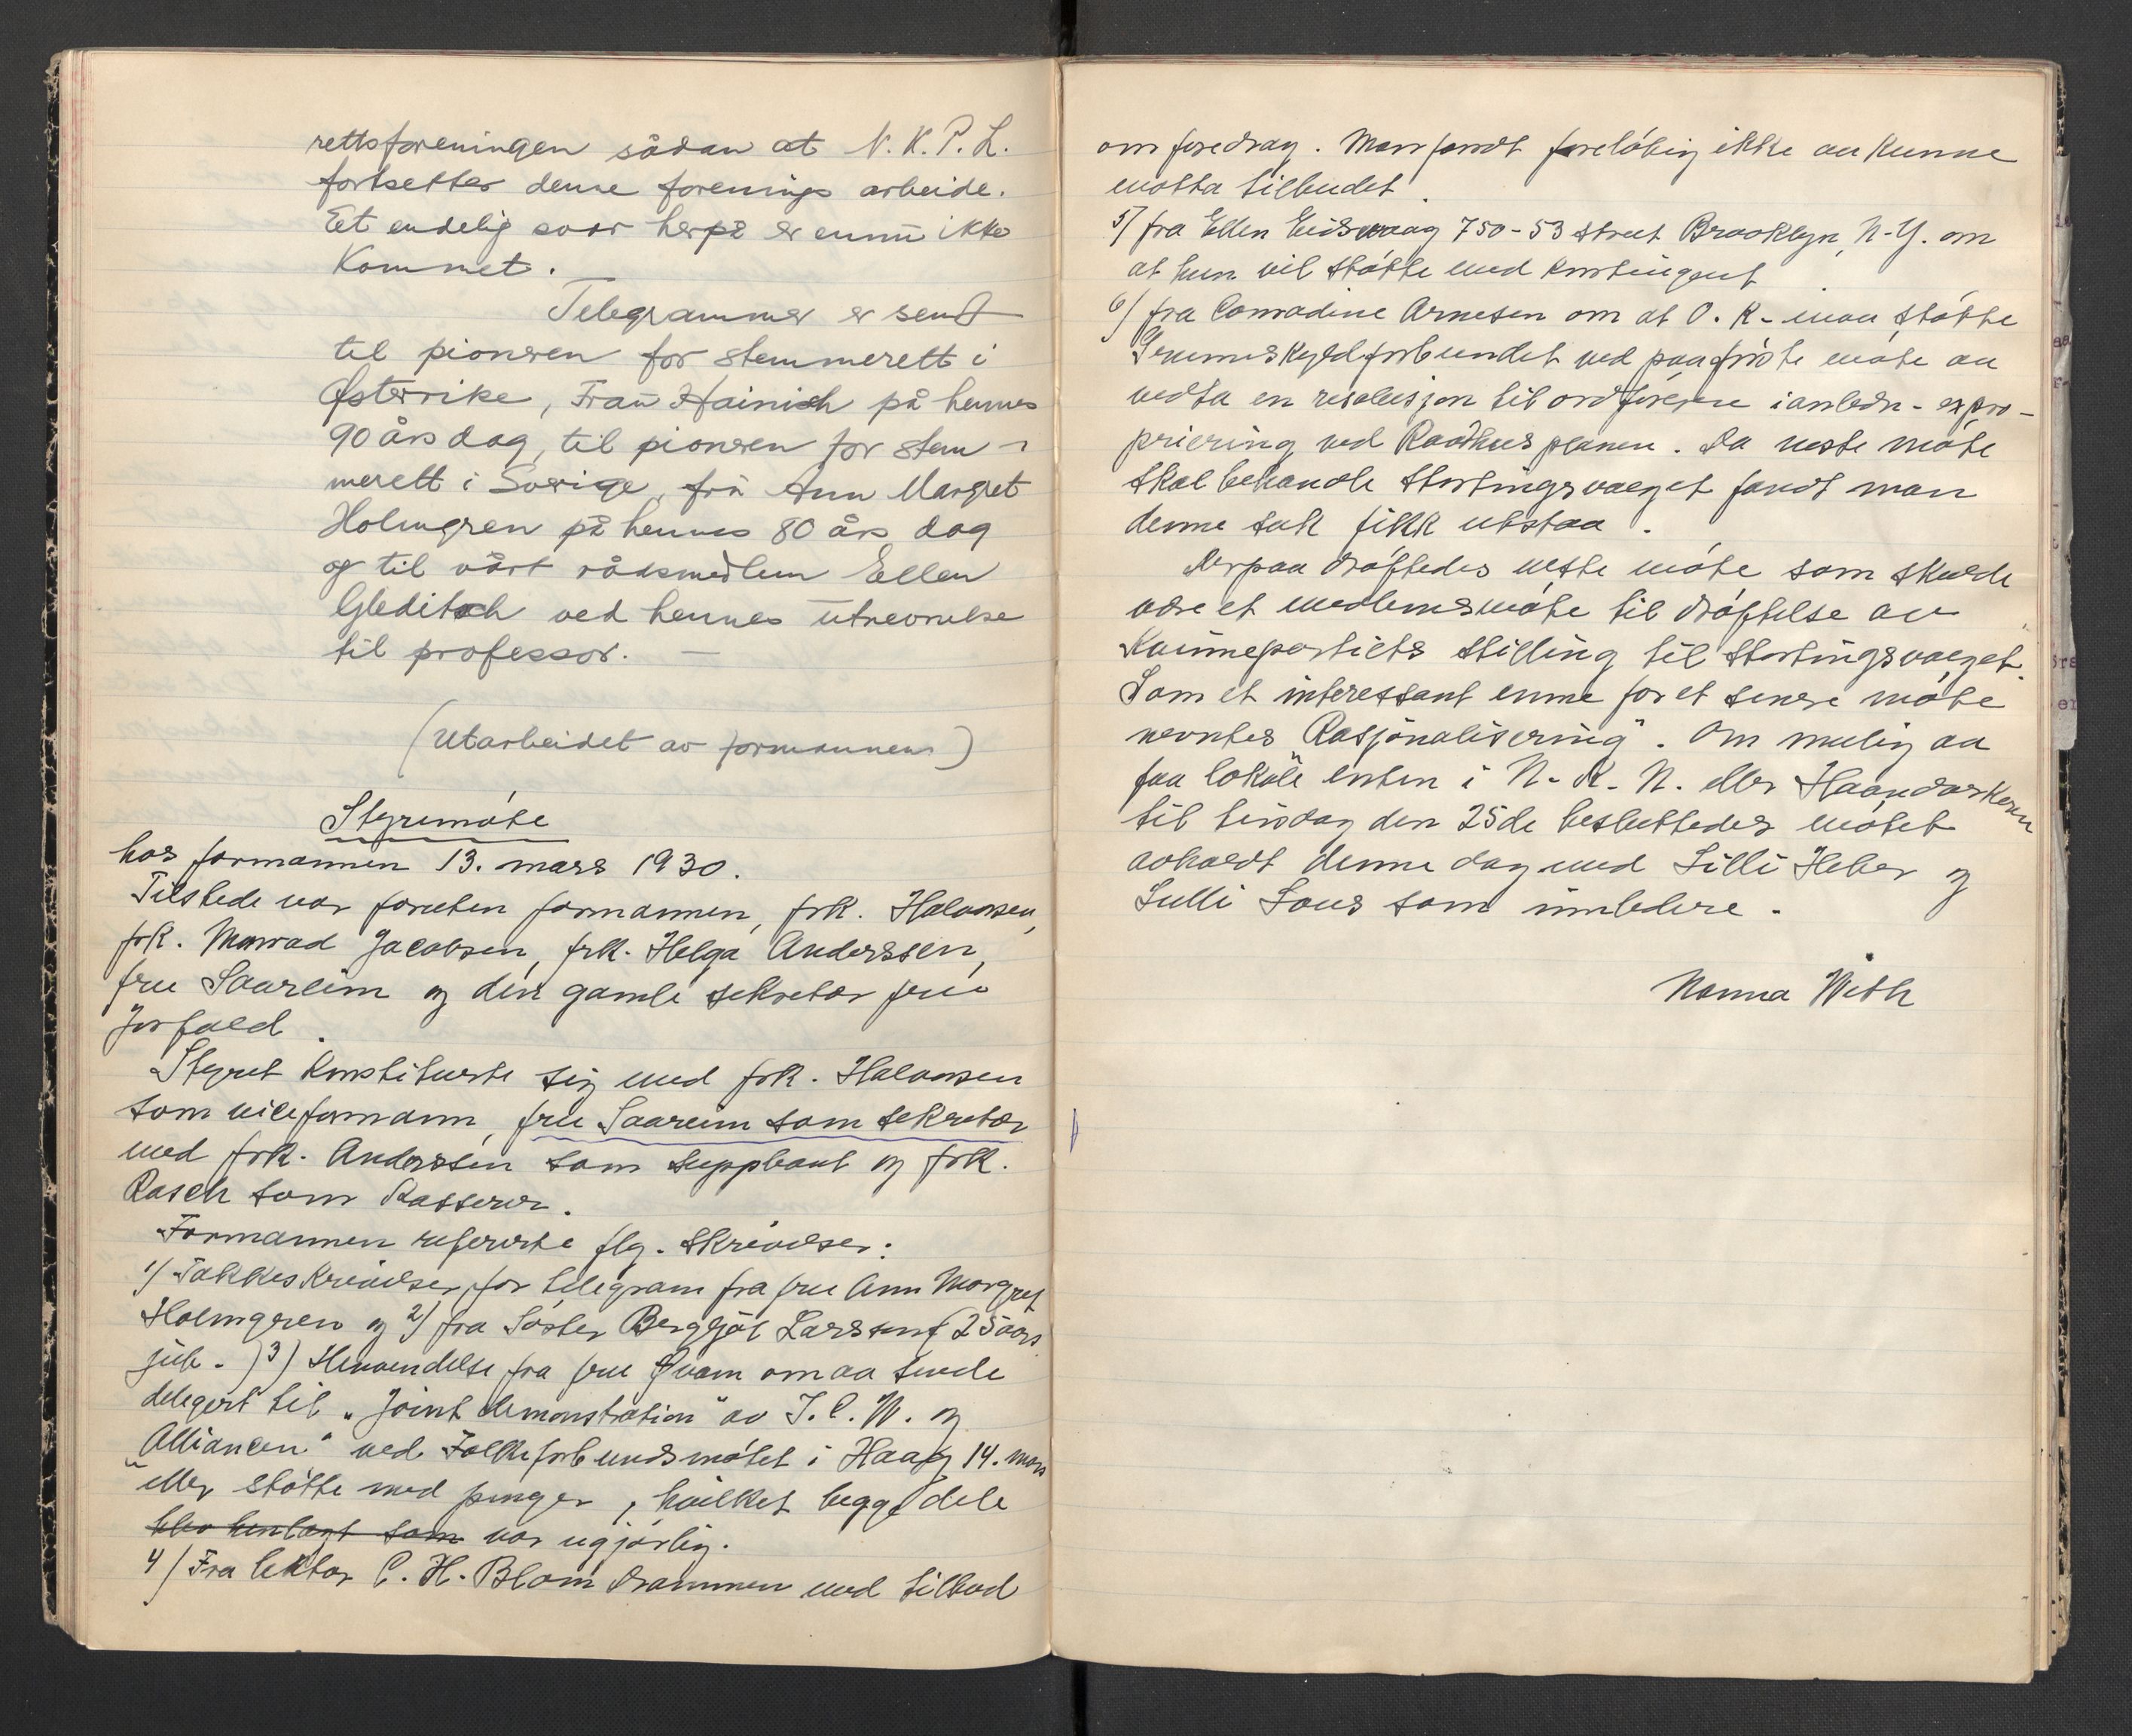 rettsforeningen sådan at N. K. P. L.
fortsetter denne forenings arbeide.
Eet endelig svar herpå er ennu ikke
kommet.
Telegrammer er sendt
til pioneren for stemmerett i
Østerrike, Frau Hainisch på hennes
90 års dag, til pioneren for stem-
merett i Sverige, fru Ann Margret
Holmgren på hennes 80 års dag
og til vårt rådsmedlem Ellen
Gleditsch ved hennes utnevnelse
til professor. —
(Utarbeidet av formannen)
Styremøte
hos formannen 13. mars 1930.
Tilstede var foruten formannen, frk. Halvorsen,
frk. Monrad Jacobsen, frk. Helga Anderssen,
fru Saareim og den gamle sekretær fru
Jorfald.
Styret konstituerte sig med frk. Halvorsen
som viceformann, fru Saareim som sekretær
med frk. Anderssen som suppleant og frk.
Rasch som kasserer.
Formannen refererte flg. skrivelser:
1/ Takkeskrivelser for telegram fra fru Ann Margret
Holmgren og 2/ fra Søster Bergljot Larsson (25 aars
jub.) 3) Henvendelse fra fru Qvam om aa sende
delegert til „Joint demonstration" av I. C. W. og
„Alliancen" ved Folkeforbundsmøtet i Haag 14. mars
eller støtte med penger, hvilket begge dele
blev henlagt som var ugjørlig.
4/ Fra lektor C. H. Blom Drammen med tilbud
om foredrag. Man fandt foreløbig ikke aa kunne
motta tilbudet.
5/ fra Ellen Eidsvaag 750-53 street Brooklyn, N-Y. om
at hun vil støtte med kontingent
6/ fra Conradine Arnesen om at O. K- maa støtte
Grunnskyldforbundet ved paa første møte aa
vedta en resolusjon til ordføreren i anledn- expro-
priering ved Raadhusplanen. Da neste møte
skal behandle Stortingsvalget fandt man
denne sak fikk utstaa.
Derpaa drøftedes neste møte som skulde
være et medlemsmøte til drøftelse av
Kvinnepartiets stilling til Stortingsvalget.
Som et interessant emne for et senere møte
nevntes „Rasjonalisering". Om mulig aa
faa lokale enten i N- K- N. eller Haandverkeren
til tirsdag den 25de besluttedes møtet
avholdt denne dag med Lilli Heber og
Lulli Lous som innledere.
Nanna With